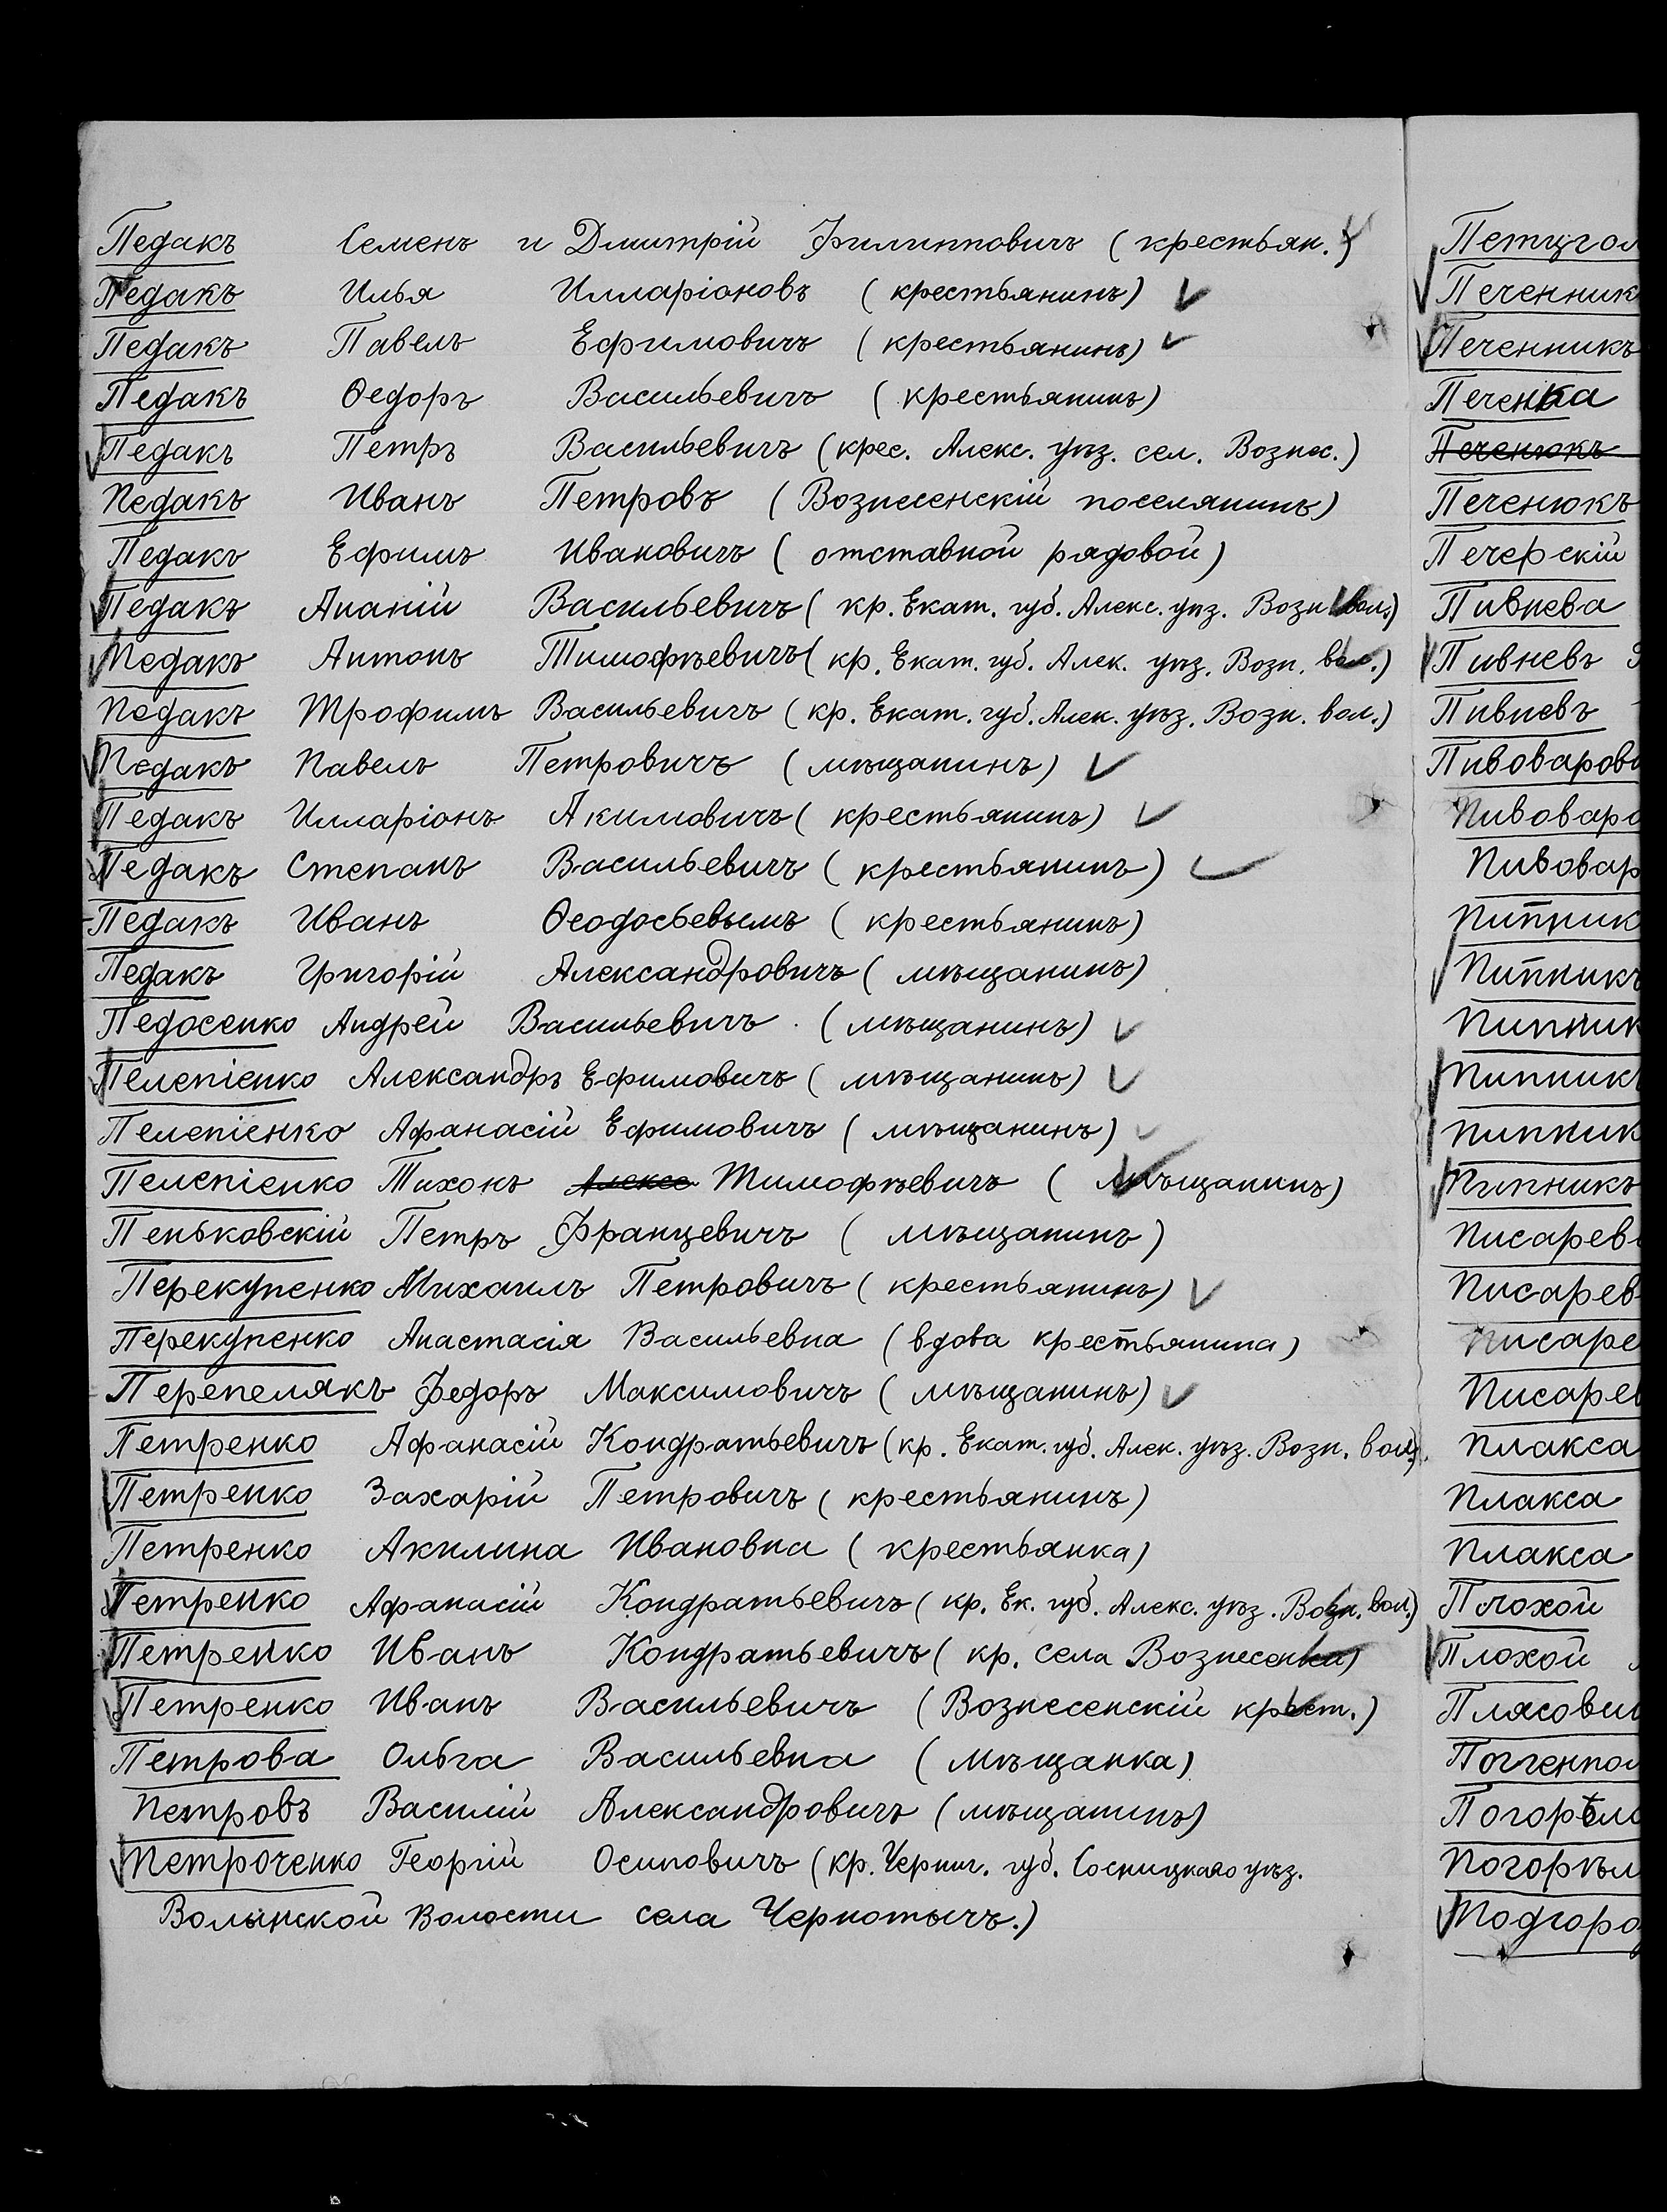 Педакъ Семенъ и Дмитрій Филипповичъ (крестьян.)
Педакъ Илья Илларіоновъ (крестьянинъ)
Педакъ Павелъ Ефимовичъ (крестьянинъ)
Педакъ Ѳедоръ Васильевичъ (крестьянинъ)
Педакъ Петръ Васильевичъ (крес. Алекс. уѣз. сел. Вознес.)
Педакъ Иванъ Петровъ (Вознесенскій поселянинъ)
Педакъ Ефимъ Ивановичъ (отставной рядовой)
Педакъ Ананій Васильевичъ (кр. Екат. губ. Алекс. уѣз. Возн. вол.)
Педакъ Антонъ Тимофѣевичъ (кр. Екат. губ. Алек. уѣз. Возн. вол.)
Педакъ Трофимъ Васильевичъ (кр. Екат. губ. Алек. уѣз. Возн. вол.)
Педакъ Павелъ Петровичъ (мѣщанинъ)
Педакъ Илларіонъ Акимовичъ (крестьянинъ)
Педакъ Степанъ Васильевичъ (крестьянинъ)
Педакъ Иванъ Ѳеодосьевымъ (крестьянинъ)
Педакъ Григорій Александровичъ (мѣщанинъ)
Педосенко Андрей Васильевичъ (мѣщанинъ)
Пелепіенко Александръ Ефимовичъ (мѣщанинъ)
Пелепіенко Афанасій Ефимовичъ (мѣщанинъ)
Пелепіенко Тихонъ Алексе Тимофѣевичъ (мѣщанинъ)
Пеньковскій Петръ Францевичъ (мѣщанинъ)
Перекупенко Михаилъ Петровичъ (крестьянинъ)
Перекупенко Анастасія Васильевна (вдова крестьянина)
Перепелякъ Федоръ Максимовичъ (мѣщанинъ)
Петренко Афанасій Кондратьевичъ (кр. Екат. губ. Алек. уѣз. Возн. вол.)
Петренко Захарій Петровичъ (крестьянинъ)
Петренко Акилина Ивановна (крестьянка)
Петренко Афанасій Кондратьевичъ (кр. Ек. губ. Алекс. уѣз. Возн. вол.)
Петренко Иванъ Кондратьевичъ (кр. села Вознесенки)
Петренко Иванъ Васильевичъ (Вознесенскій крест.)
Петрова Ольга Васильевна (мѣщанка)
Петровъ Василій Александровичъ (мѣщанинъ)
Петроченко Георгій Осиповичъ (кр. Черниг. губ. Сосницкаго уѣз.
Волынской Волости села Чернотычъ.)
Петцгол
Печенник
Печенникъ
Печенка
Печенюкъ
Печенюкъ
Печерскій
Пивнева
Пивневъ
Пивневъ
Пивоварови
Пивоваро
Пивовар
Пипник
Пипникъ
Пипник
Пипникъ
Пипник
Пипникъ
Писарев
Писарев
Писаре
Писарев
Плакса
Плакса
Плакса
Плохой
Плохой
Плясови
Поггенпол
Погорѣло
Погорѣл
Подгород